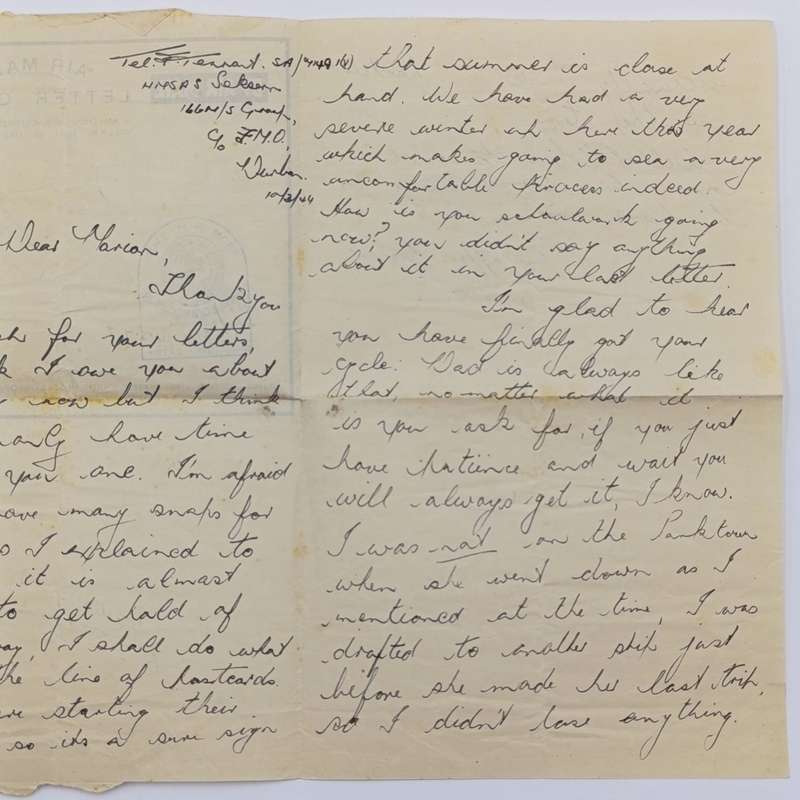 Tel. F Tennant. SA/
HMSAS Seksern
166 M/S Group,
c/o F.M.O,
Durban.
10/2/44
Dear Marion,
Thank you
for your letters,
I owe you about
now but I think
only have time
you one. I'm afraid
have many snaps for
I explained to
it is almost
to get hold of
I shall do what
the line of postcards.
starting their
so its a sure sign
that summer is close at
hand. We have had a very
severe winter here this year
which makes going to sea a very
uncomfortable process indeed.
How is you schoolwork going
now? you didn't say anything
about it in your last letter.
I'm glad to hear
you have finally got your
cycle. Dad is always like
that, no matter what it
is you ask for, if you just
have patiince and wait you
will always get it, I know.
I was not on the Parktown
when she went down as I
mentioned at the time, I was
drafted to another ship just
before she made her last trip,
so I didn't lose anything.